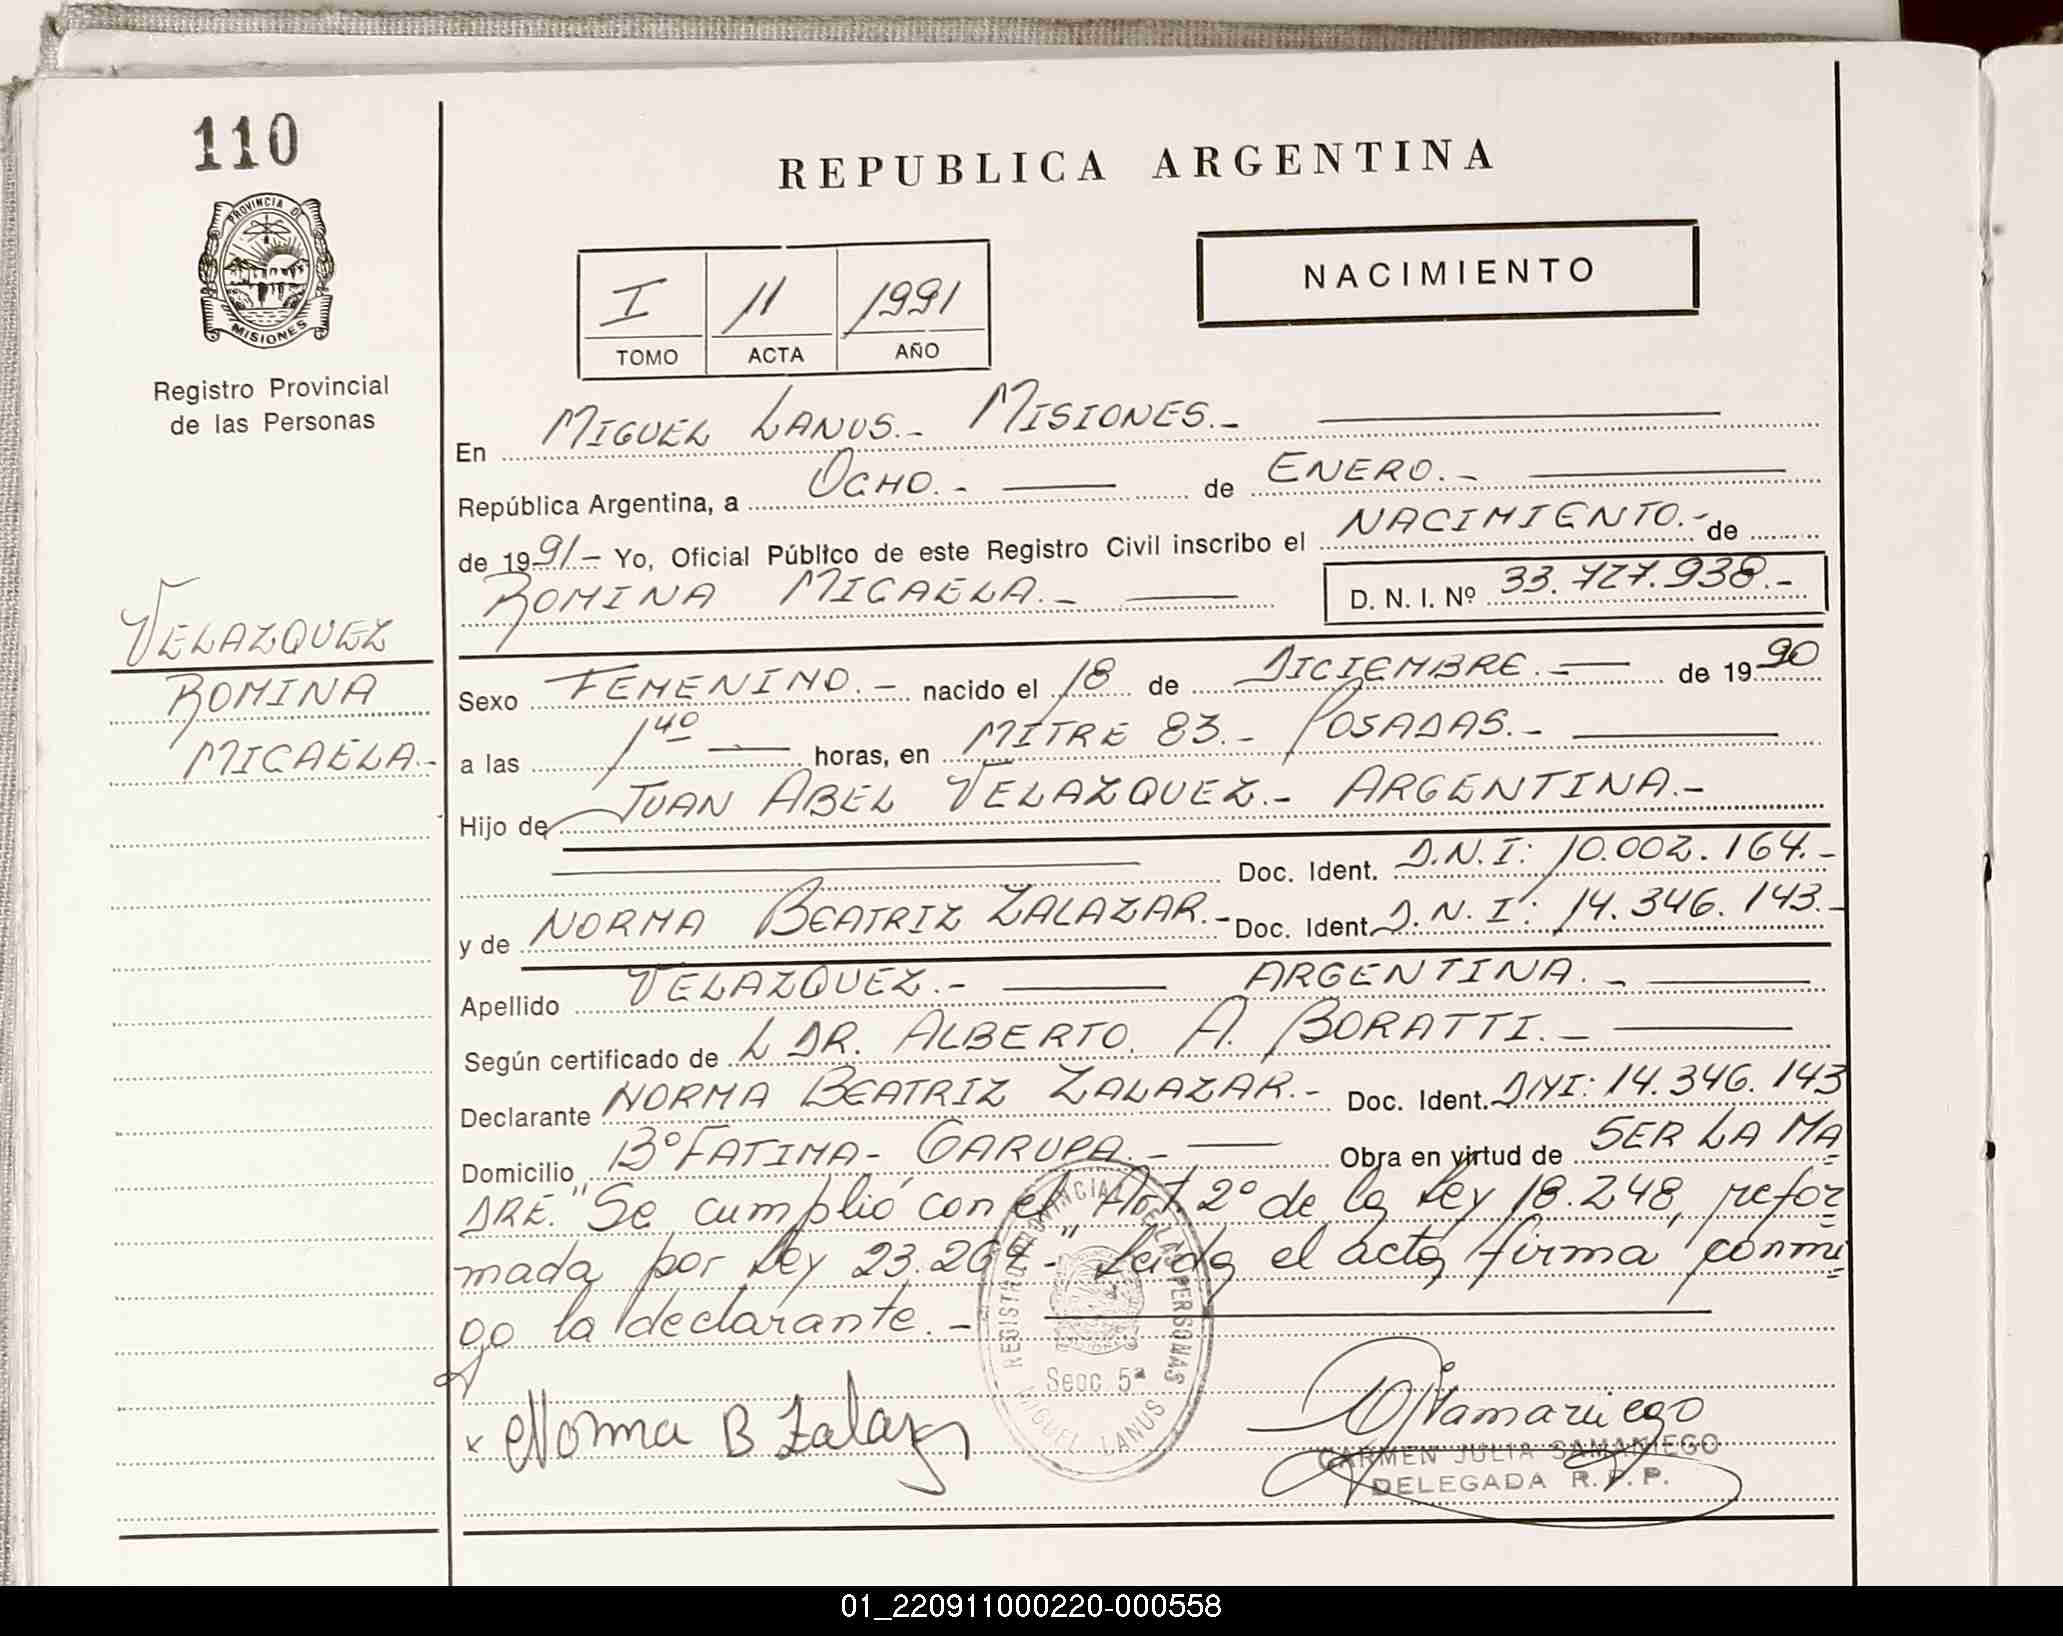 110
PROVINCIA DE
MISIONES
Registro Provincial
de las Personas
VELAZQUEZ
ROMINA
MICAELA.-
REPUBLICA ARGENTINA
I 11 1991
TOMO ACTA AÑO
NACIMIENTO
En MIGUEL LANUS.- MISIONES.-
República Argentina, a OCHO.- de ENERO.-
de 1991- Yo, Oficial Público de este Registro Civil inscribo el NACIMIENTO.- de
ROMINA MICAELA.- D. N. I. Nº 33.727.938.-
Sexo FEMENINO.- nacido el 18 de DICIEMBRE.- de 1990
a las 1 40 horas, en MITRE 83.- POSADAS.-
Hijo de JUAN ABEL VELAZQUEZ.- ARGENTINA.-
Doc. Ident. D.N.I: 10.002.164.-
y de NORMA BEATRIZ ZALAZAR.- Doc. Ident. D.N.I: 14.346.143.-
Apellido VELAZQUEZ.- ARGENTINA.-
Según certificado de L DR. ALBERTO. A. BORATTI.-
Declarante NORMA BEATRIZ ZALAZAR.- Doc. Ident. DNI: 14.346.143
Domicilio Bº FATIMA- GARUPA.- Obra en virtud de SER LA MA
DRE. "Se cumplió con el Art. 2º de la Ley 18.248, refor
mada por Ley 23.264.-" Leida el acta, firma conmi
go la declarante.-
REGISTRO PROVINCIAL DE LAS PERSONAS
Secc. 5ª
MIGUEL LANUS
x Norma B Zalazar
CJSamaniego
CARMEN JULIA SAMANIEGO
DELEGADA R.P.P.
01_220911000220-000558